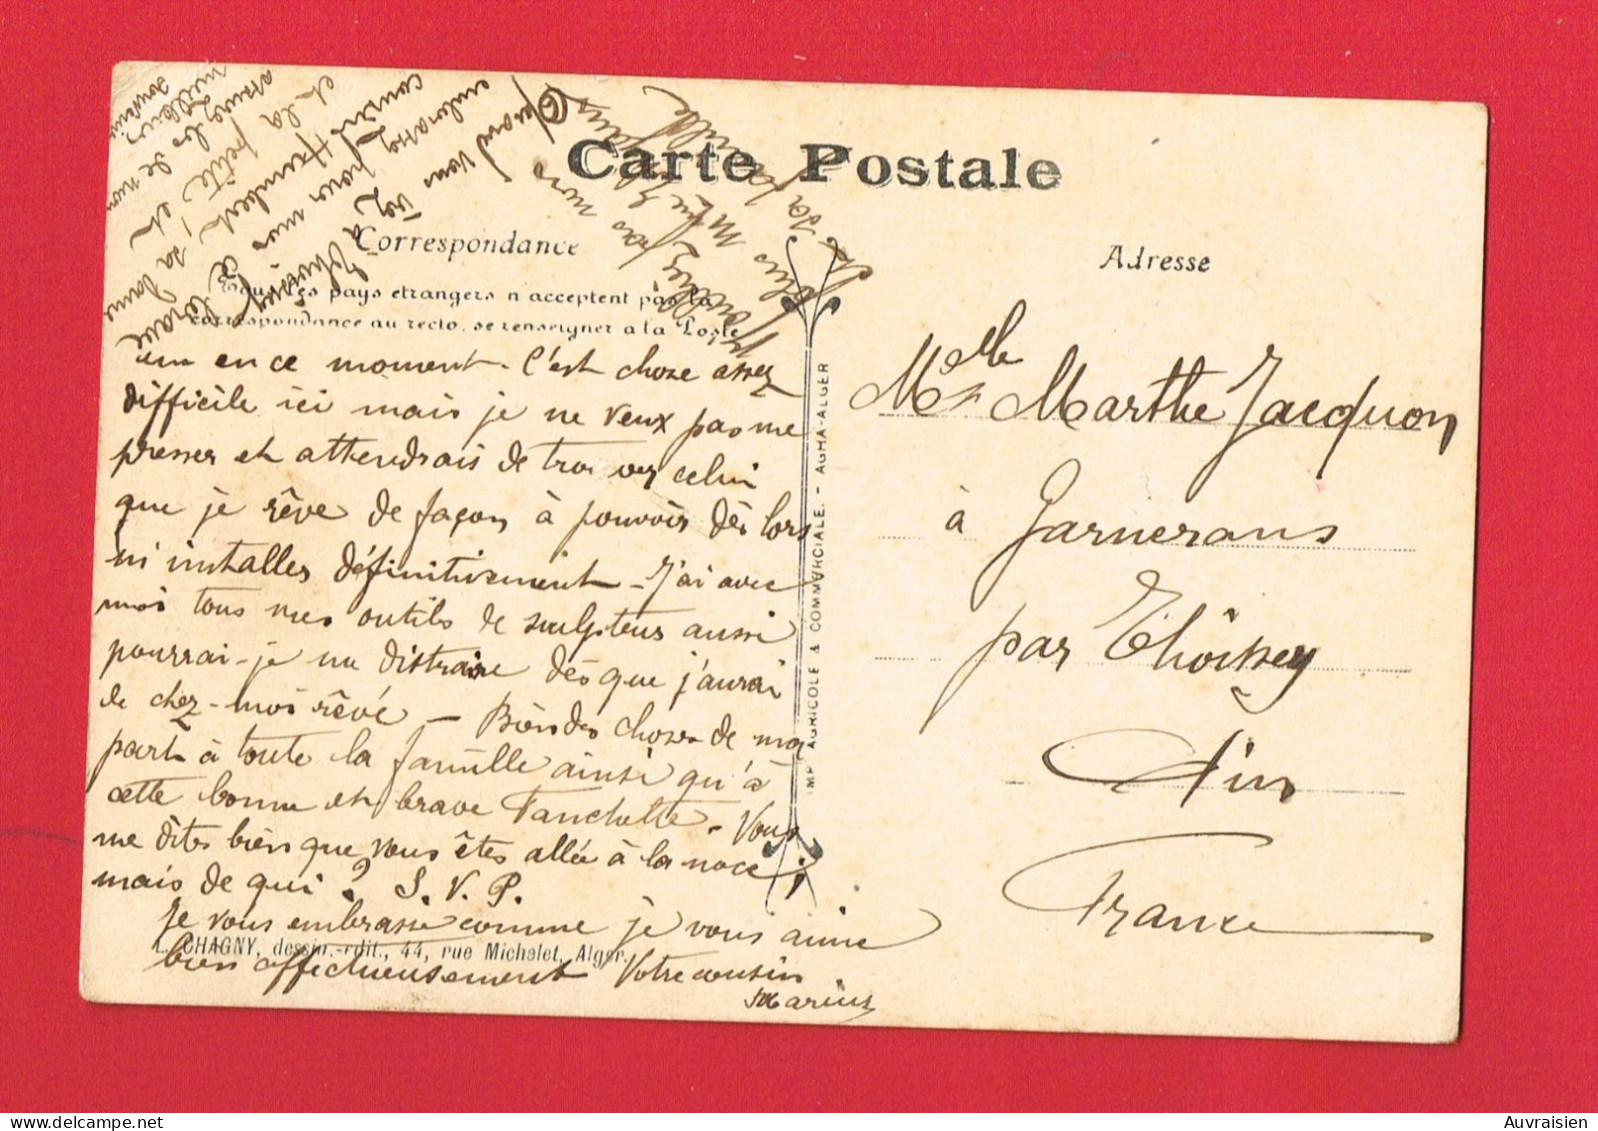 Carte Postale
Correspondance
Adresse
Tous les pays etrangers n acceptent pas la
correspondance au recto, se renseigner a la Poste
en ce moment. C'est chose assez
difficile ici mais je ne veux pas me
presser et attendrais de
celui
que je rêve de façon à pouvoir dès lors
m'installer définitivement - J'ai avec
moi tous mes outils de sculpteur aussi
pourrai-je me distraire dès que j'aurai
le chez-moi rêvé - Bien des choses de ma
part à toute la famille ainsi qu'à
cette bonne et brave Fanchette. Vous
me dites bien que vous êtes allée à la noce
mais de qui ? S. V. P.
Je vous embrasse comme je vous aime
bien affectueusement Votre cousin
Marius
L. CHAGNY, dessin.-édit., 44, rue Michelet, Alger.
Quand vous
embrassez pour moi ce brave
cousin Humbert, sa dame
et la petite, et
assurez les de mon
meilleur
souvenir
à Thoissey
n'oubliez pas non
plus Mme
et sa famille
IMP. AGRICOLE & COMMERCIALE. - AGHA-ALGER
Melle Marthe Jacquon
à Garnerans
par Thoissey
Ain
France
Auvraisien